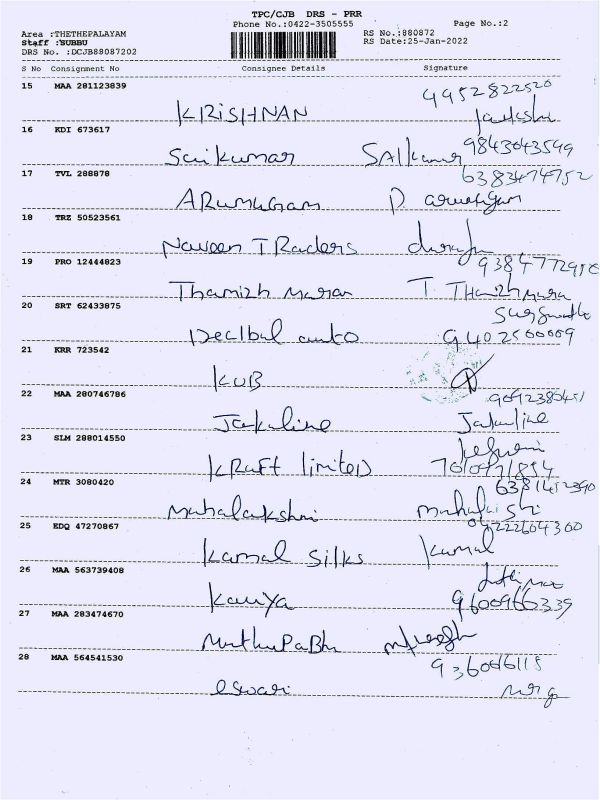 TPC/CJB DRS - PRR
Phone No.:0422-3505555 Page No.:2
Area :THETHEPALAYAM RS No.:880872
Staff :SUBBU RS Date:25-Jan-2022
DRS No. :DCJB88087202
S No Consignment No Consignee Details Signature
15 MAA 281123839 9952822520
KRISHNAN
16 KDI 673617
Saikumar SAIkumar 9843043599
17 TVL 288878 6383474752
ARUMUGAM P arumugam
18 TRZ 50523561
Naveen TRaders
19 PRO 12444823
Thamizh maran T. Thamizhmaran
20 SRT 62433875
Decibal auto 9402500009
21 KRR 723542
KUB
22 MAA 280746786 9092380451
Jakuline Jakuline
23 SLM 288014550
KRaft limited
24 MTR 3080420 6381452390
Mahalakshmi
25 EDQ 47270867 04222604300
Kamal Silks Kamal
26 MAA 563739408
Kaviya 9600966339
27 MAA 283474670
MuthuPaBhu
28 MAA 564541530
eswari